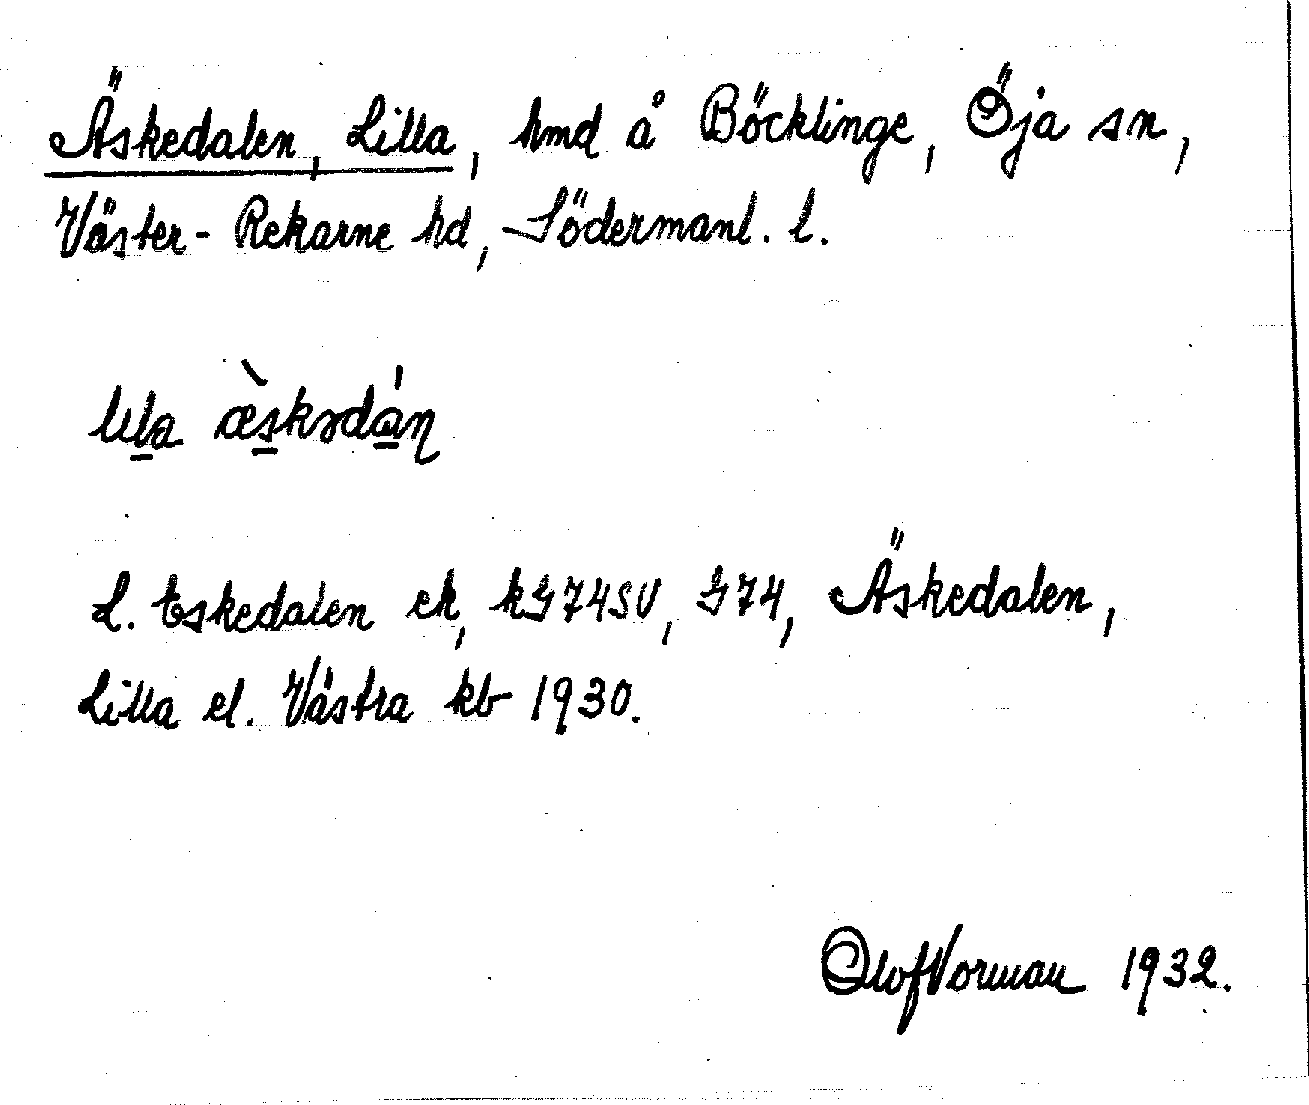 Äskedalen, Lilla, hmd å Böcklinge, Öja sn,
Väster-Rekarne hd, Södermanl. l.
lɩla æ̀skədán
L. Eskedalen ek, kG74SV, G74, Äskedalen,
Lilla el. Västra kb 1930.
Olof Vorman 1932.